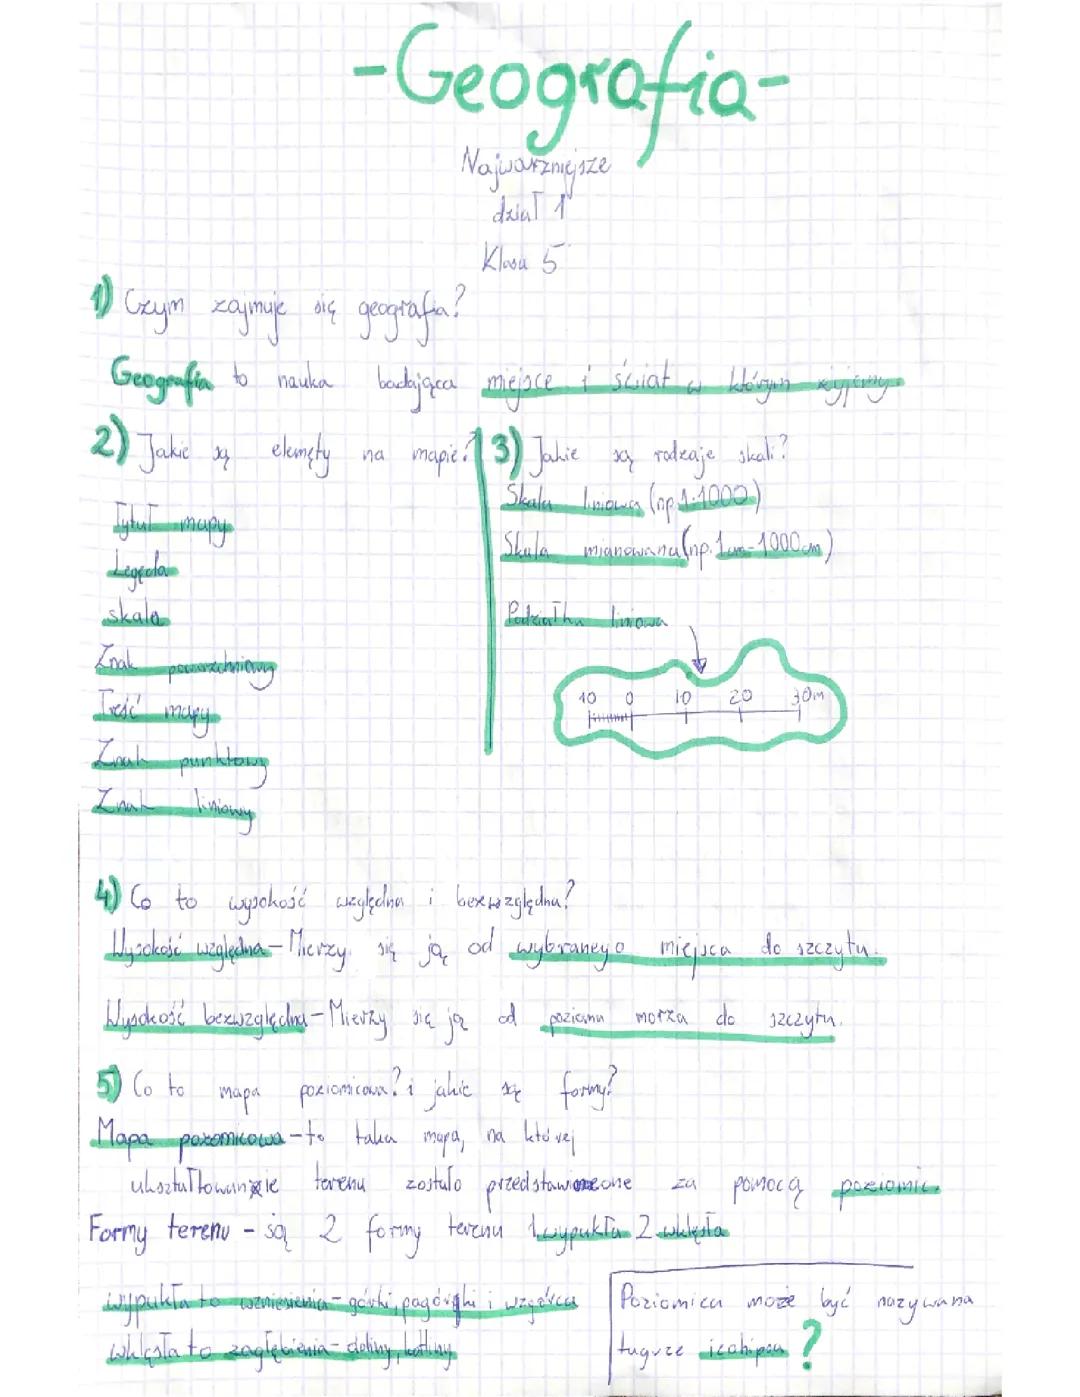 -Geografia-
Najważniejsze
dział 1
Klasa 5
1) Czym zajmuje się geografia?
Geografia to nauka badająca miejsce i świat w którym żyjemy
2) Jakie są elemęty na mapie?
Tytuł mapy
Legęda
skala
Znak powierzchniowy
Treść mapy
Znak punktowy
Znak liniowy
3) Jakie są rodzaje skali?
Skala liniowa (np. 1:1000)
Skala mianowana (np. 1cm-1000cm)
Podziałka liniowa
10 0 10 20 30m
4) Co to wysokość względna i bezwzględna?
Wysokość względna - Mierzy się ją od wybranego miejsca do szczytu.
Wysokość bezwzględna - Mierzy się ją od poziomu morza do szczytu.
5) Co to mapa poziomicowa? i jakie są formy?
Mapa pozomicowa - to taka mapa, na której
ukształtowanie terenu zostało przedstawione za pomocą poziomic.
Formy terenu - są 2 formy terenu 1 wypukła 2 wklęsła
wypukła to wzniesienia - górki, pagórki i wzgórza
wklęsła to zagłębienia - doliny, kotliny
Poziomica może być nazywana